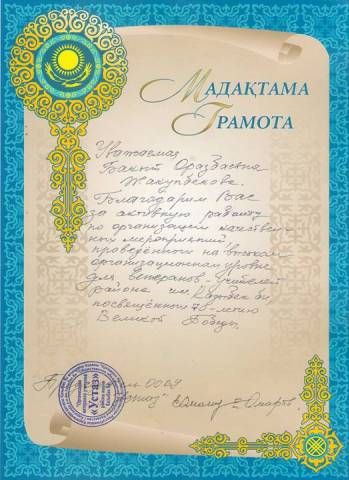 МАДАҚТАМА
ГРАМОТА
Уважаемая
Бакыт Оразбаевна
Жакупбекова.
Благодарим Вас
за активную работу
по организации качествен-
ных мероприятий
проведённой на высоком
организационном уровне
для ветеранов учителей
района им. Казыбек би,
посвящённой 78-летию
Великой Победы.
"Устаз"